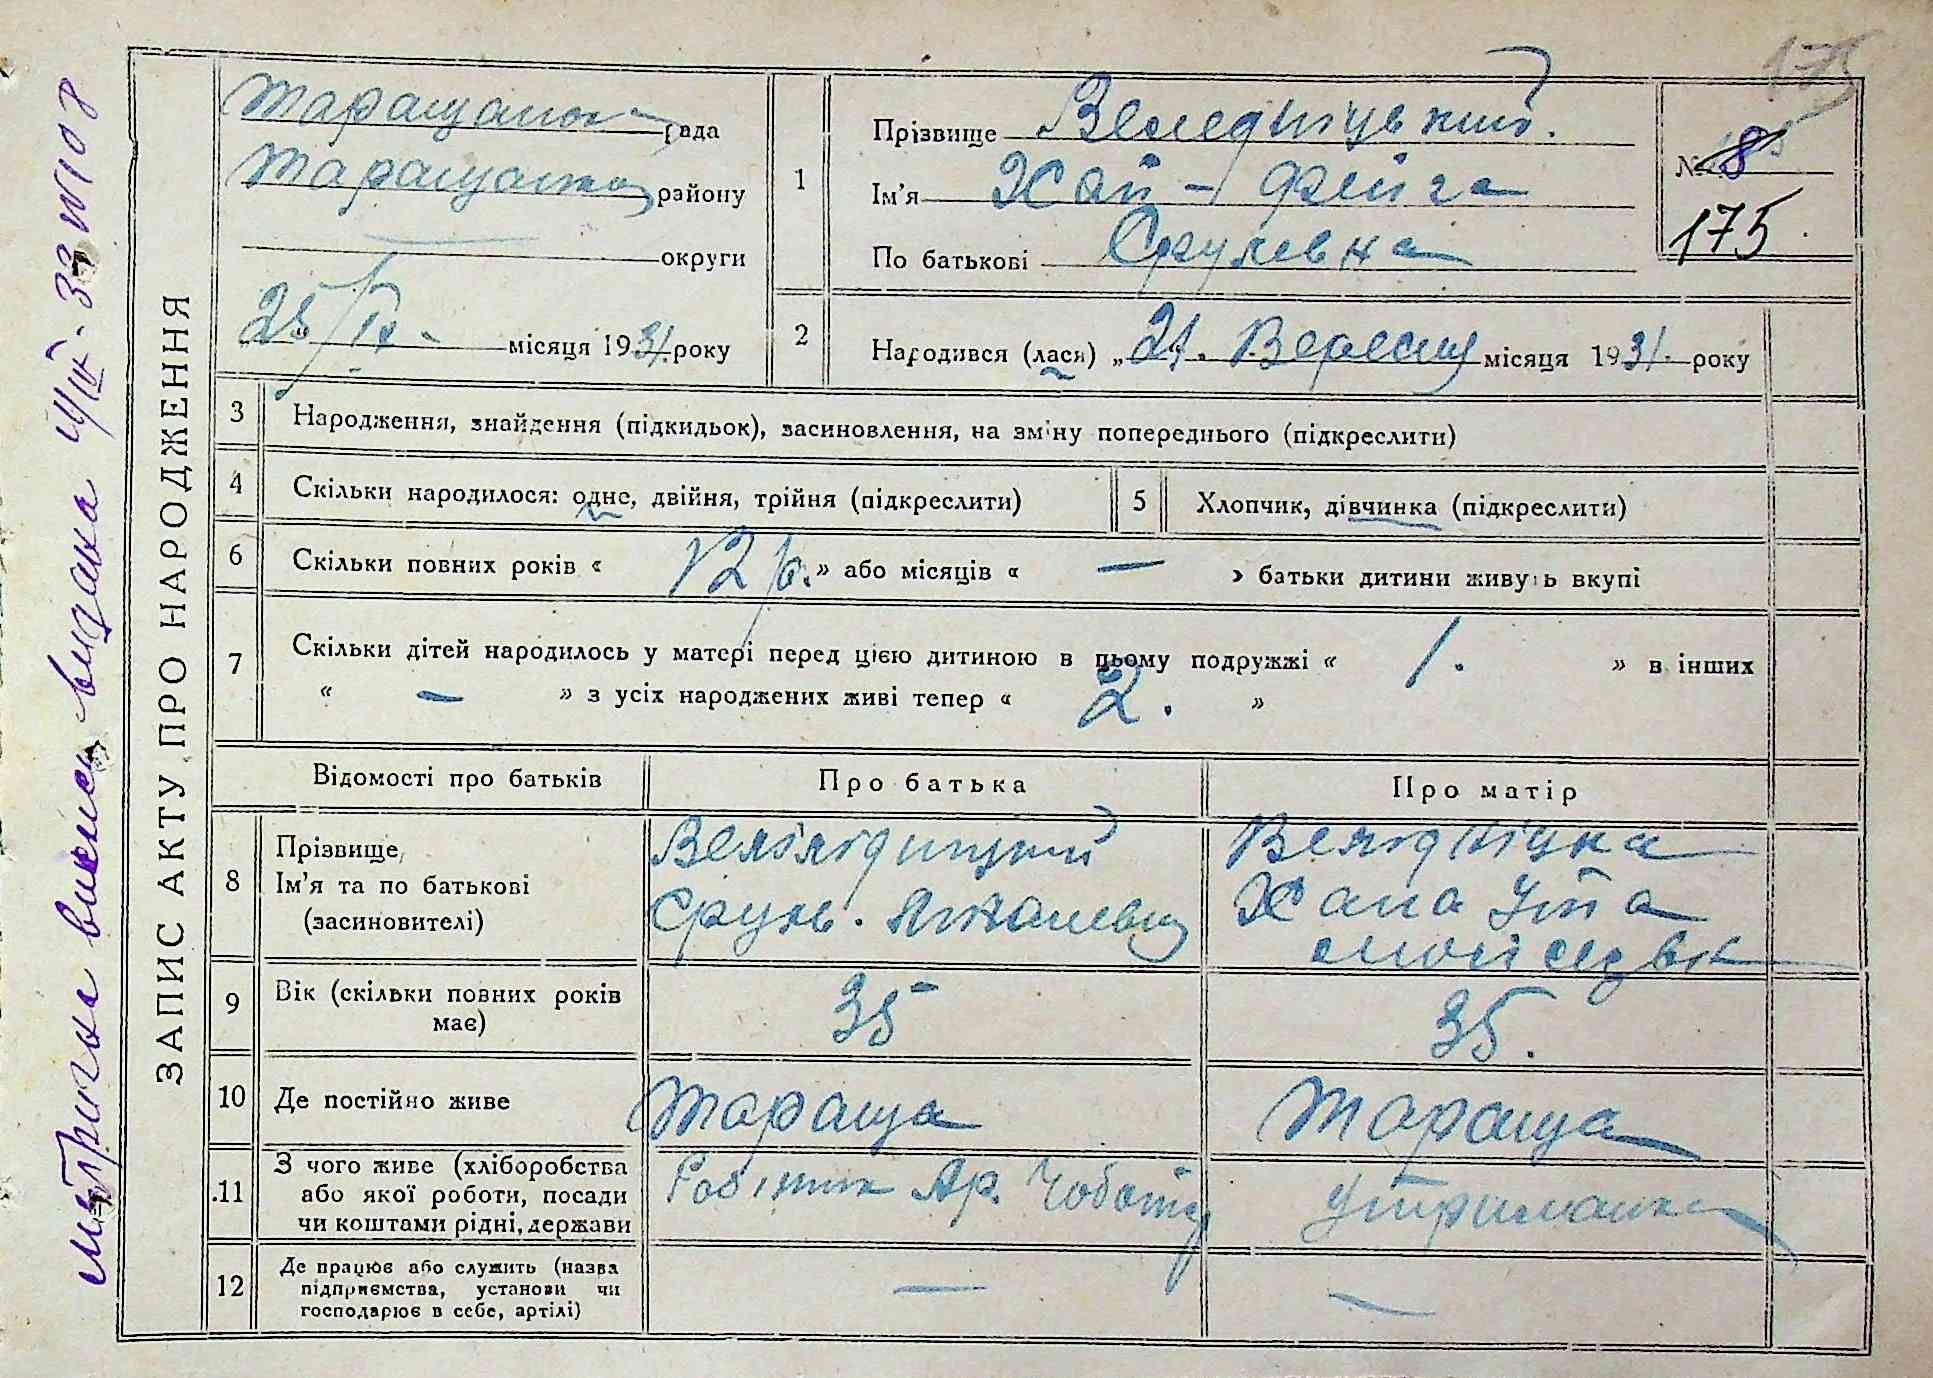 175
ЗАПИС АКТУ ПРО НАРОДЖЕННЯ
метрична випись видана 11/IV-33 N108
рада
району
округи
25/IX - місяця 1931 року
1
Прізвище
Ім'я Хая - Фейга
По батькові Срулевна
№ 8
175
2
Народився (лася) „21. Вересня місяця 1931. року
3
Народження, знайдення (підкидьок), засиновлення, на зміну попереднього (підкреслити)
4
Скільки народилося: одне, двійня, трійня (підкреслити)
5
Хлопчик, дівчинка (підкреслити)
6
Скільки повних років « 12 р. » або місяців « — » батьки дитини живуть вкупі
7
Скільки дітей народилось у матері перед цією дитиною в цьому подружжі « 1. » в інших
« — » з усіх народжених живі тепер « 2. »
Відомості про батьків
Про батька
Про матір
8
Прізвище,
Ім'я та по батькові
(засиновителі)
Сруль.
Хана
Мойсеївна
9
Вік (скільки повних років
має)
35
35.
10
Де постійно живе
Тараща
Тараща
11
З чого живе (хліборобства
або якої роботи, посади
чи коштами рідні, держави
Робітник Ар. Чоботар
утриманка
12
Де працює або служить (назва
підприємства, установи чи
господарює в себе, артілі)
—
—